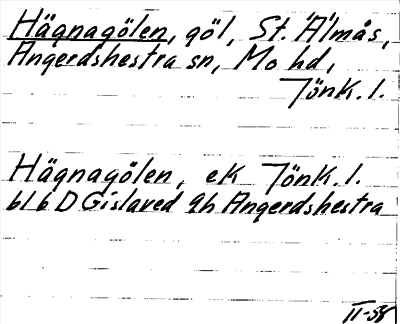 Hägnagölen, göl, St. Älmås,
Angerdshestra sn, Mo hd,
Jönk. l.
Hägnagölen, ek Jönk. l.
6l 6 D Gislaved 9h Angerdshestra
II-58